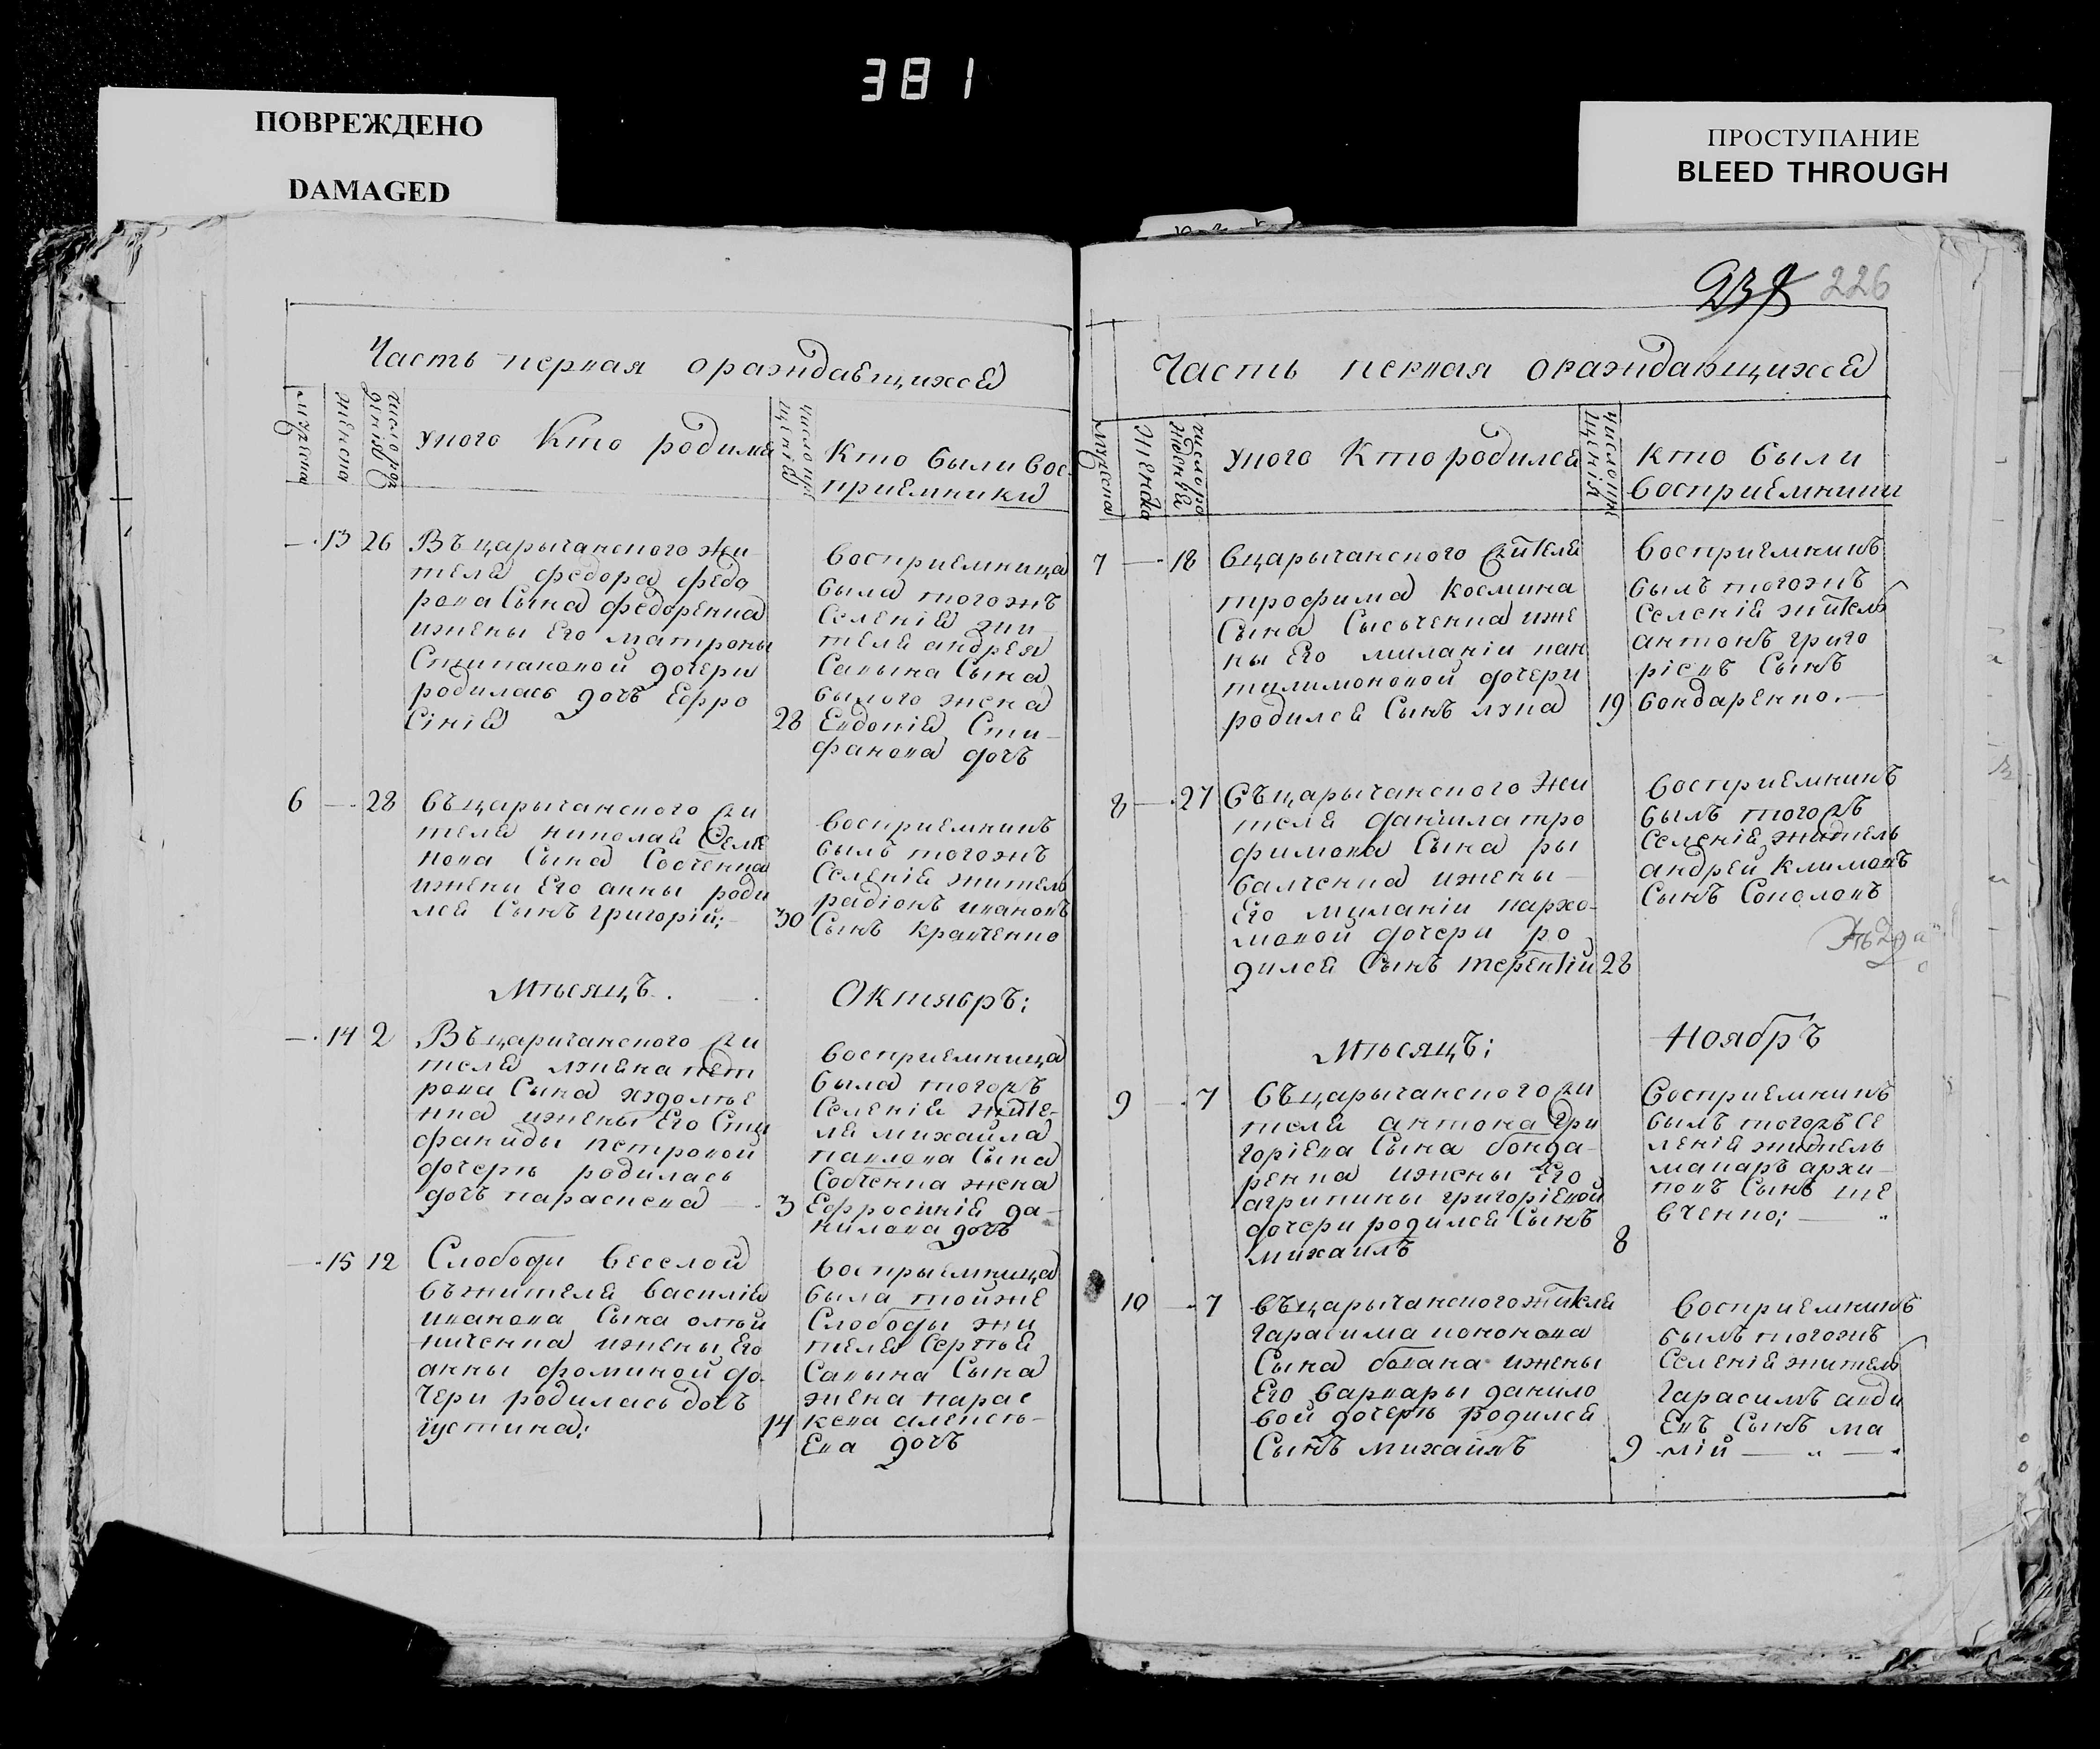 381
ПОВРЕЖДЕНО
DAMAGED
ПРОСТУПАНИЕ
BLEED THROUGH
Часть первая ораждавщихся
мужеска
женска
число рож
денія
укого Кто родился
число кре
щенія
Кто были вос
приемники
13 26 Въ царычанского жи
теля федора федо
рова Сына федоренка
ижены Его матроны
Стипановой дочери
родилась дочь Ефро
Сінія
28
восприемница
была тогожъ
Селенія жи
теля андрея
Савына Сына
былого жена
Евдокія Сти
фанова дочь
6 — 28 въцарычанского жи
теля николая Семе
нова Сына Собченка
ижени Его анны роди
лся Сынъ григорій;
30
восприемникъ
былъ тогожъ
Селенія житель
радіонъ ивановъ
Сынъ кравченко
Мѣсяцъ. Октябръ:
14 2 Въцаричанского жи
теля якова пет
рова Сына
ижены Его Сти
фаниды петровой
дочерѣ родилась
дочь параскева
3
восприемница
была тогожъ
Селенія жите-
ля михайла
павлова Сына
Собченка жена
Ефросинія да-
нилова дочь
15 12 Слободи веселой
въжителя василія
иванова Сына олѣй
ниченка ижены Его
анны фоминой до-
чери родилась дочь
іустина;
14
воспрыемница
была тойже
Слободы жи
теля Сергѣя
Савына Сына
жена парас
кева алексѣ-
Ева дочь
237 226
Часть первая ораждающихся
мужеска
Женска
число ро
жденія
укого Кто родился
число кре
щенія
кто были
восприемники
7 — 18 вцарычанского жителя
трофима космина
Сына Сысоченка иже
ны Его миланіи пан
тилимоновой дочери
родился Сынъ лука
19
восприемникъ
былъ тогожъ
Селенія житель
антонъ григо
ріевъ Сынъ
бондаренко.
8 — 27 Въцарычанского жи
теля данiила тро
фимова Сына ры
балченка ижены
Его миланіи пархо-
мовой дочери ро
дился Сынъ терентій
28
восприемникъ
былъ тогожъ
Селенія житель
андрей климовъ
Сынъ Соколовъ
Мѣсяцъ; Ноябръ
9 — 7 въцарычанского жи
теля антона гри
горіева Сына бонда-
ренка ижены Его
агрипины григоріевой
дочери родился Сынъ
михаилъ
8
Восприемникъ
былъ тогожъ Се
ленія житель
макаръ архи-
повъ Сынъ ше
вченко;
10 — 7 въцарычанского жителя
гарасима
Сына ижены
Его варвары данило
вой дочерѣ родился
Сынъ михайлъ
9
восприемникъ
былъ тогожъ
Селенія житель
гарасимъ авди
Евъ Сынъ ма
лій